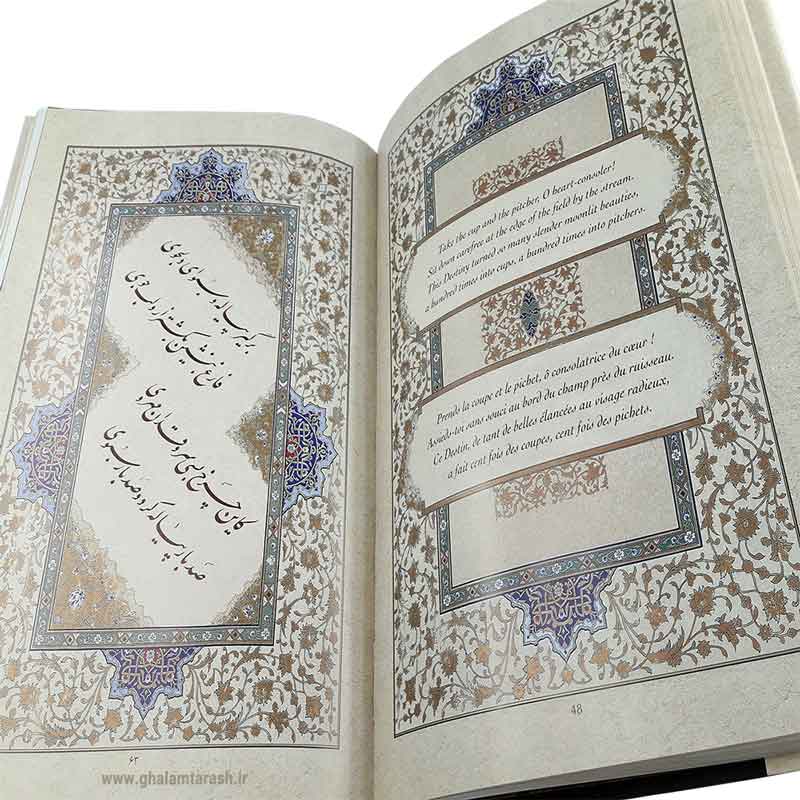 برگیر پیاله و سبو ای دلجوی
فارغ بنشین بکشتزار و لب جوی
کاین چرخ بسی سروقدان مهروی
صد بار پیاله کرد و صد بار سبوی
۶۳
Take the cup and the pitcher, O heart-consoler!
Sit down carefree at the edge of the field by the stream.
This Destiny turned so many slender moonlit beauties,
a hundred times into cups, a hundred times into pitchers.
Prends la coupe et le pichet, ô consolatrice du cœur !
Assieds-toi sans souci au bord du champ près du ruisseau.
Ce Destin, de tant de belles élancées au visage radieux,
a fait cent fois des coupes, cent fois des pichets.
48
www.ghalamtarash.ir